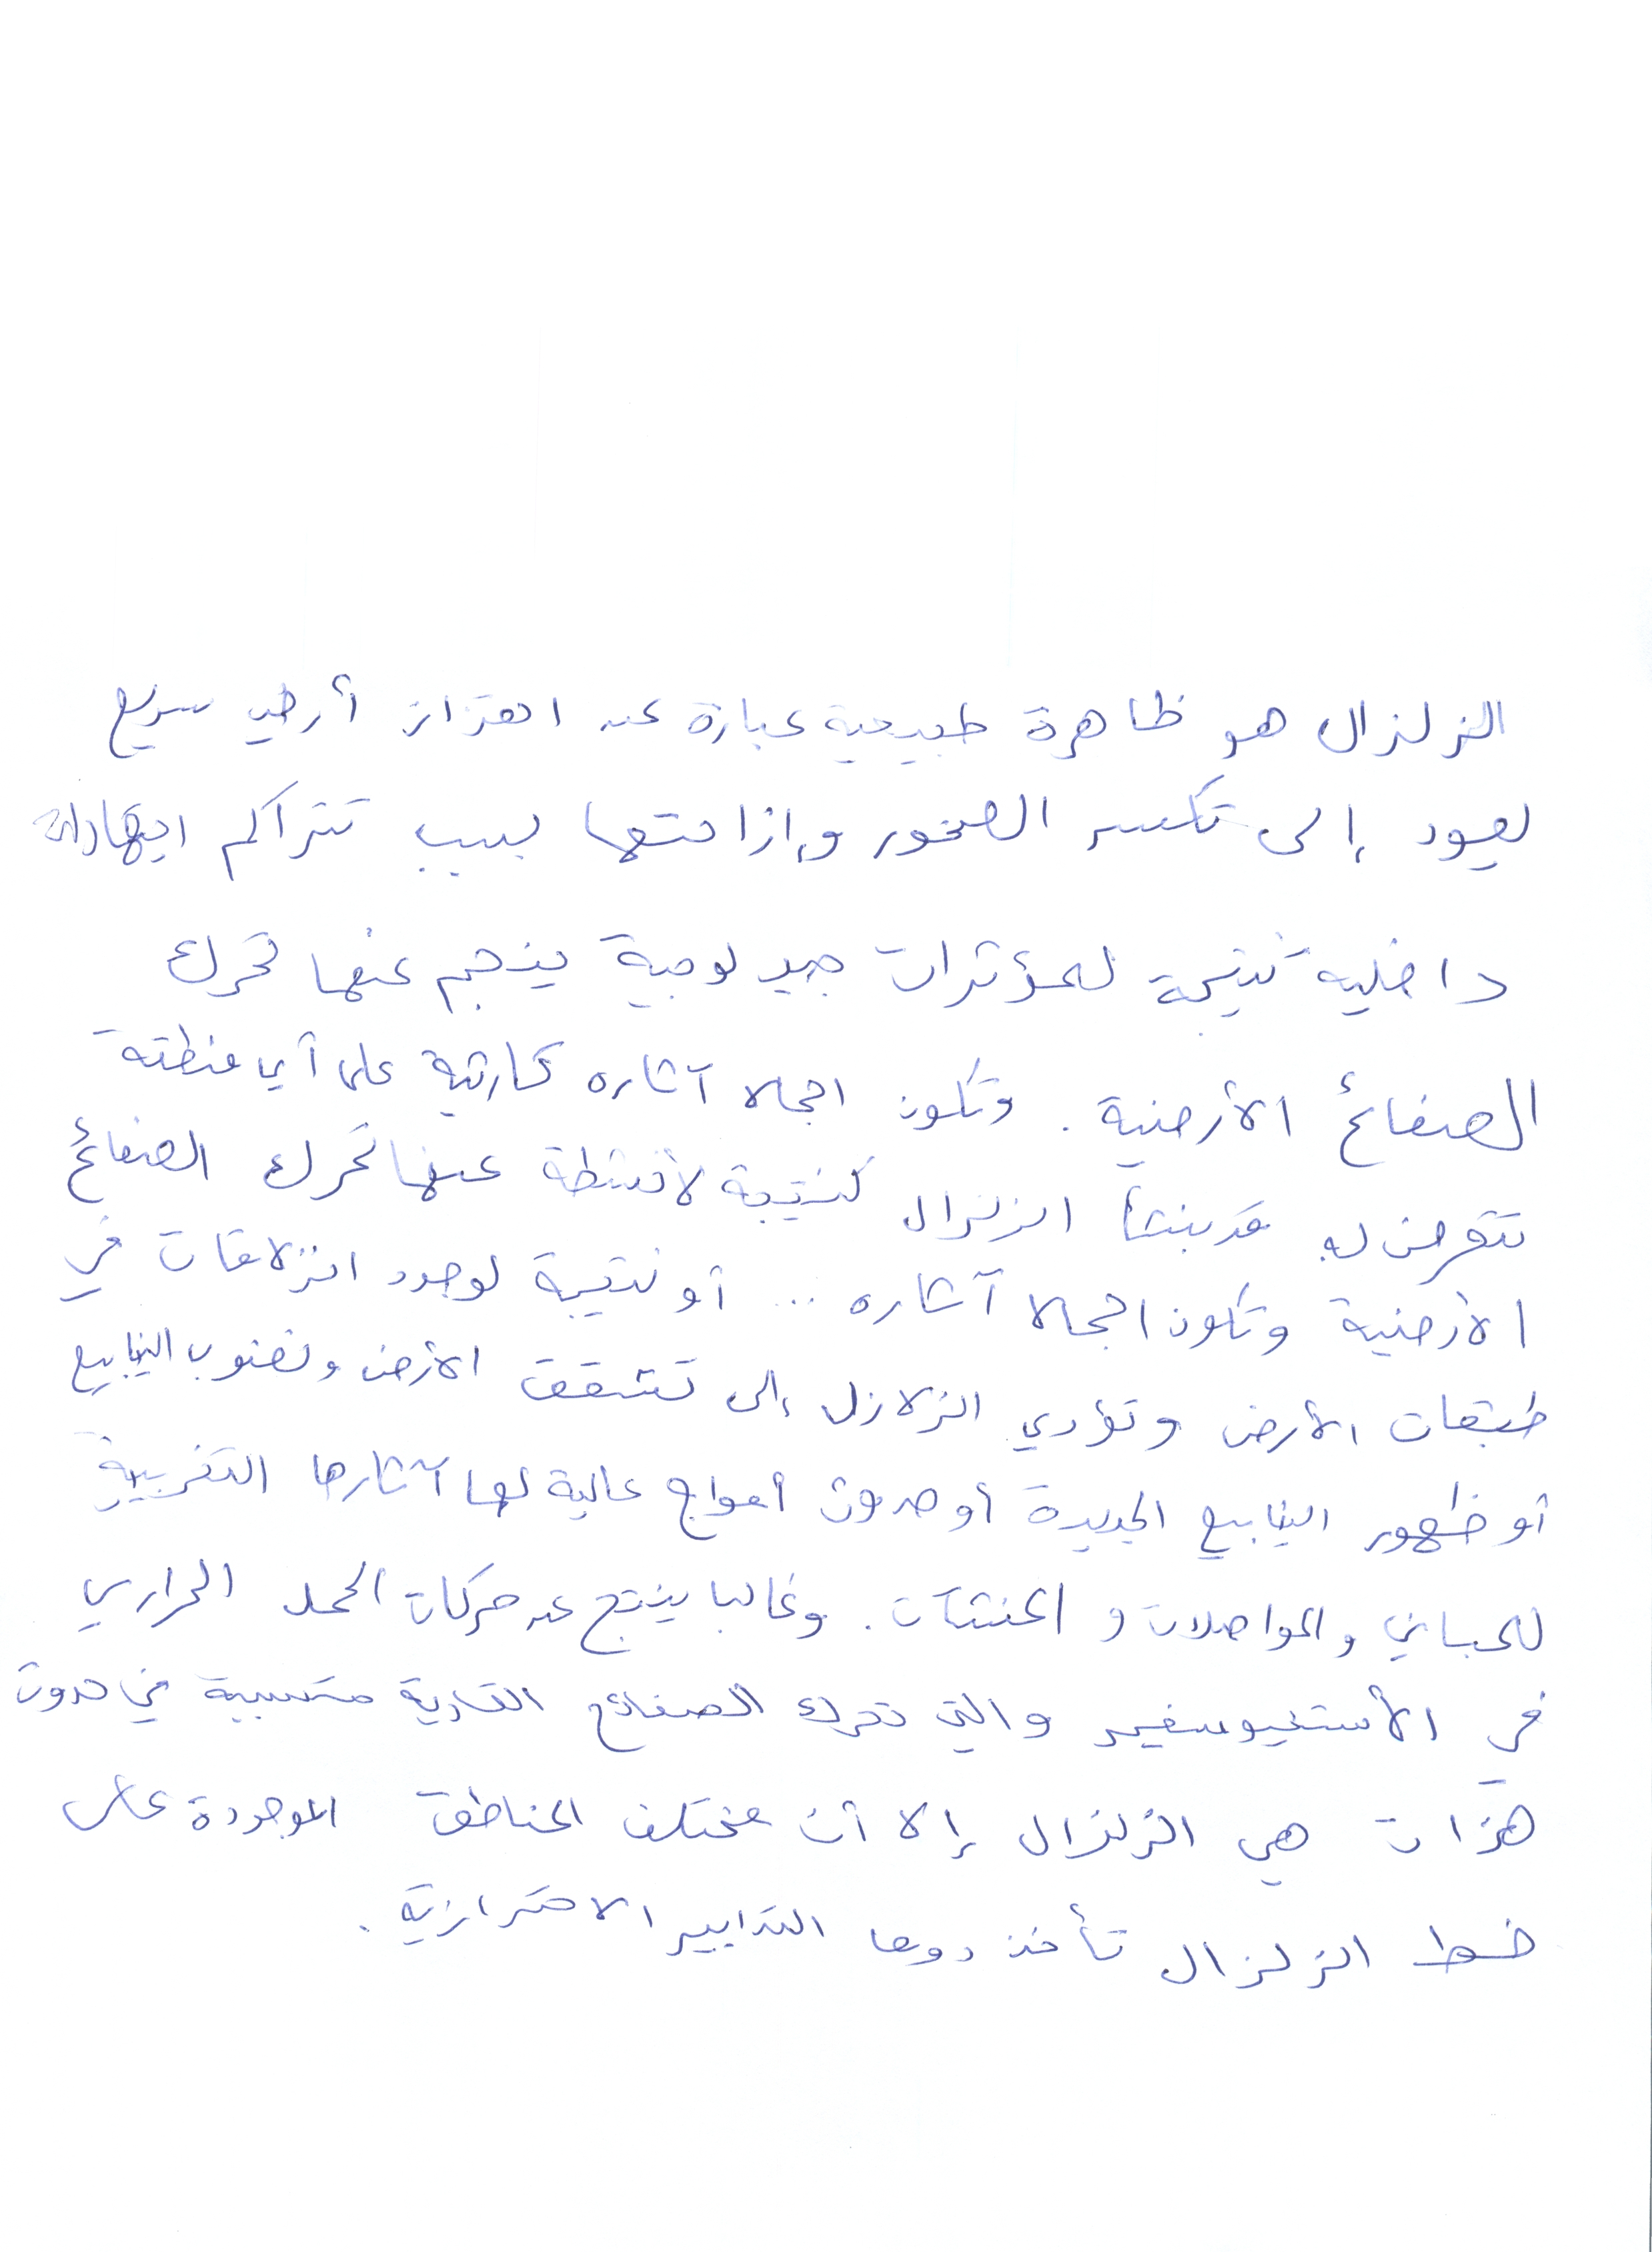 الزلزال هو ظاهرة طبيعية عبارة عن اهتزاز أرضي سريع
يعود إلى تكسر الصخور وإزاحتها بسبب تتراكم اجهادات
داخلية نتيجة لمؤثرات جيولوجية ينجم عنها تحرك
الصفائح الأرضية. وتكون اجمالا آثاره كارثية على أي منطقة
تتعرض له قد ينشأ الزلزال كنتيجة لأنشطة عنها تحرك الصفائح
الأرضية وتكون اجمالا آثاره ... أو نتيجة لوجود انزلاقات في
طبقات الأرض وتؤدي الزلازل إلى تشقق الأرض ونضوب الينابيع
أو ظهور الينابيع الجديدة أو حدوث أمواج عالية لها آثارها التخريبية
للمباني والمواصلات و المنشآت. وغالبا ينتج عن حركات الحمل الحراري
في الأستنيوسفير والتي تحرك الصفائح القارية متسببة في حدوث
هزات هي الزلزال إلا أن مختلف المناطق الموجودة على
خط الزلزال تأخذ دوما التدابير الاحترازية.